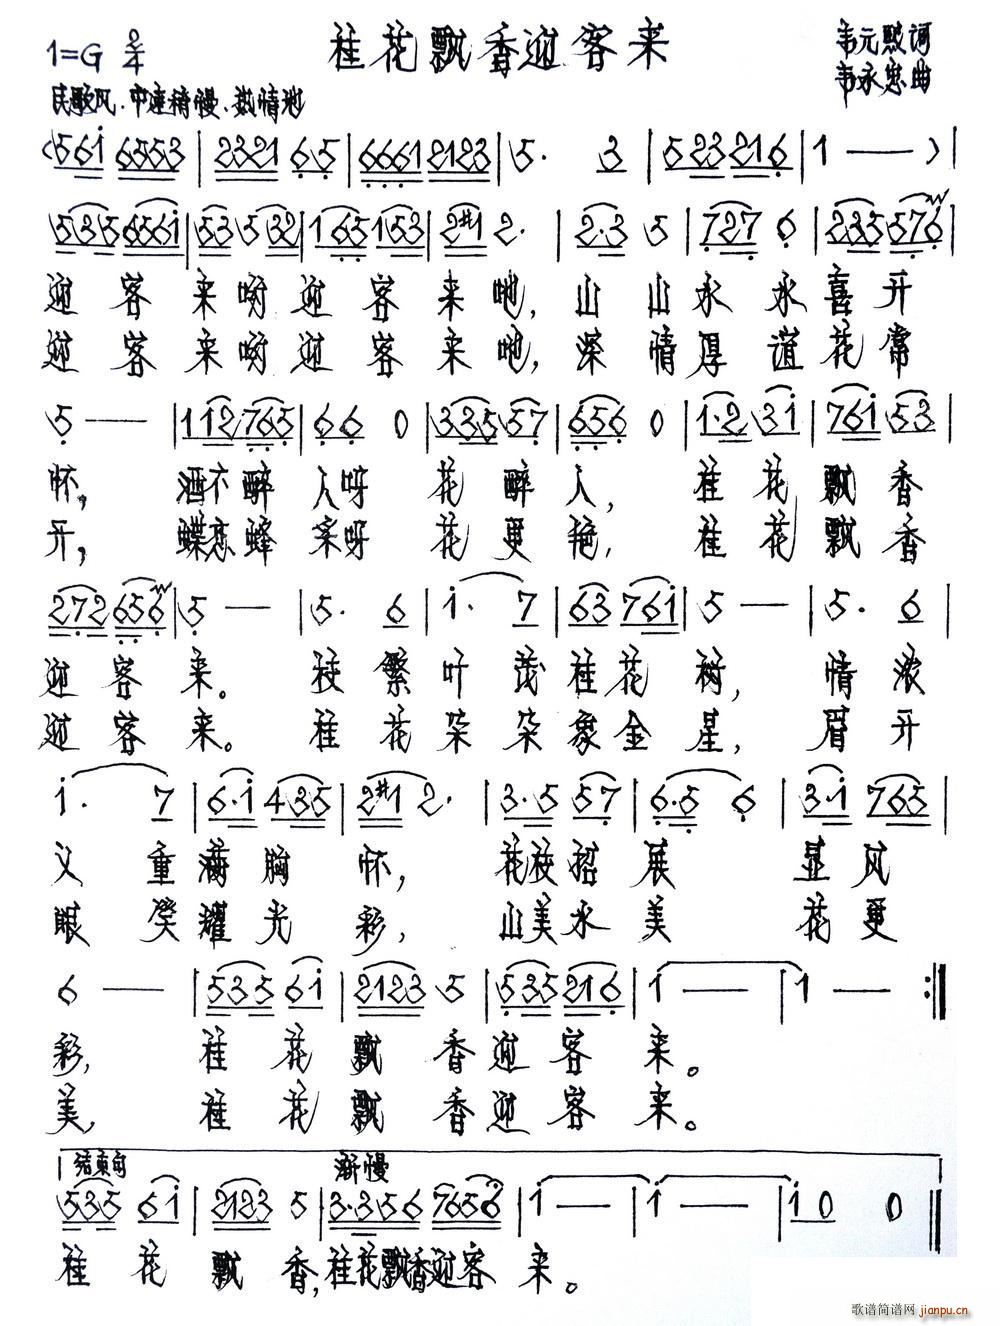 桂花飘香迎客来
1=G 2/4
韦元毅词
韦永忠曲
民歌风.中速稍慢、热情地
(5 6 i 6 5 5 3 | 2 3 2 1 6 5 | 6 6 6 1 2 1 2 3 | 5. 3 | 5 2 3 2 1 6 | 1 — )|
5 3 5 6 5 6 i | 5 3 5 3 2 | 1 6 5 1 5 3 | 2 #1 2. | 2. 3 5 | 7 2 7 6 | 2 3 5 5 7 6 |
迎 客 来 哟 迎 客 来 吔, 山 山 水 水 喜 开
迎 客 来 哟 迎 客 来 吔, 深 情 厚 谊 花 常
5 — | 1 1 2 7 6 5 | 6 6 0 | 3 3 5 5 7 | 6 5 6 0 | 1. 2 3 i | 7 6 i 5 3 |
怀, 酒不醉 人呀 花 醉 人, 桂 花 飘 香
开, 蝶恋蜂 采呀 花 更 艳, 桂 花 飘 香
2 7 2 6 5 6 | 5 — | 5. 6 | i. 7 | 6 3 7 6 i | 5 — | 5. 6 |
迎 客 来。 枝 繁 叶 茂 桂 花 树, 情 浓
迎 客 来。 桂 花 朵 朵 象 金 星, 眉 开
i. 7 | 6. i 4 3 5 | 2 #1 2. | 3. 5 5 7 | 6. 5 6 | 3. i 7 6 5 |
义 重 满 胸 怀, 花枝招 展 显 风
眼 笑 耀 光 彩, 山美水 美 花 更
6 — | 5 3 5 6 i | 2 1 2 3 5 | 5 3 5 2 1 6 | 1 — | 1 — :‖
彩, 桂 花 飘 香 迎 客 来。
美, 桂 花 飘 香 迎 客 来。
结束句 渐慢
5 3 5 6 i | 2 1 2 3 5 | 3. 3 5 6 7 6 5 6 | i — | i — | i 0 0 ‖
桂 花 飘 香,桂花飘香迎客 来。
歌谱简谱网 jianpu.cn